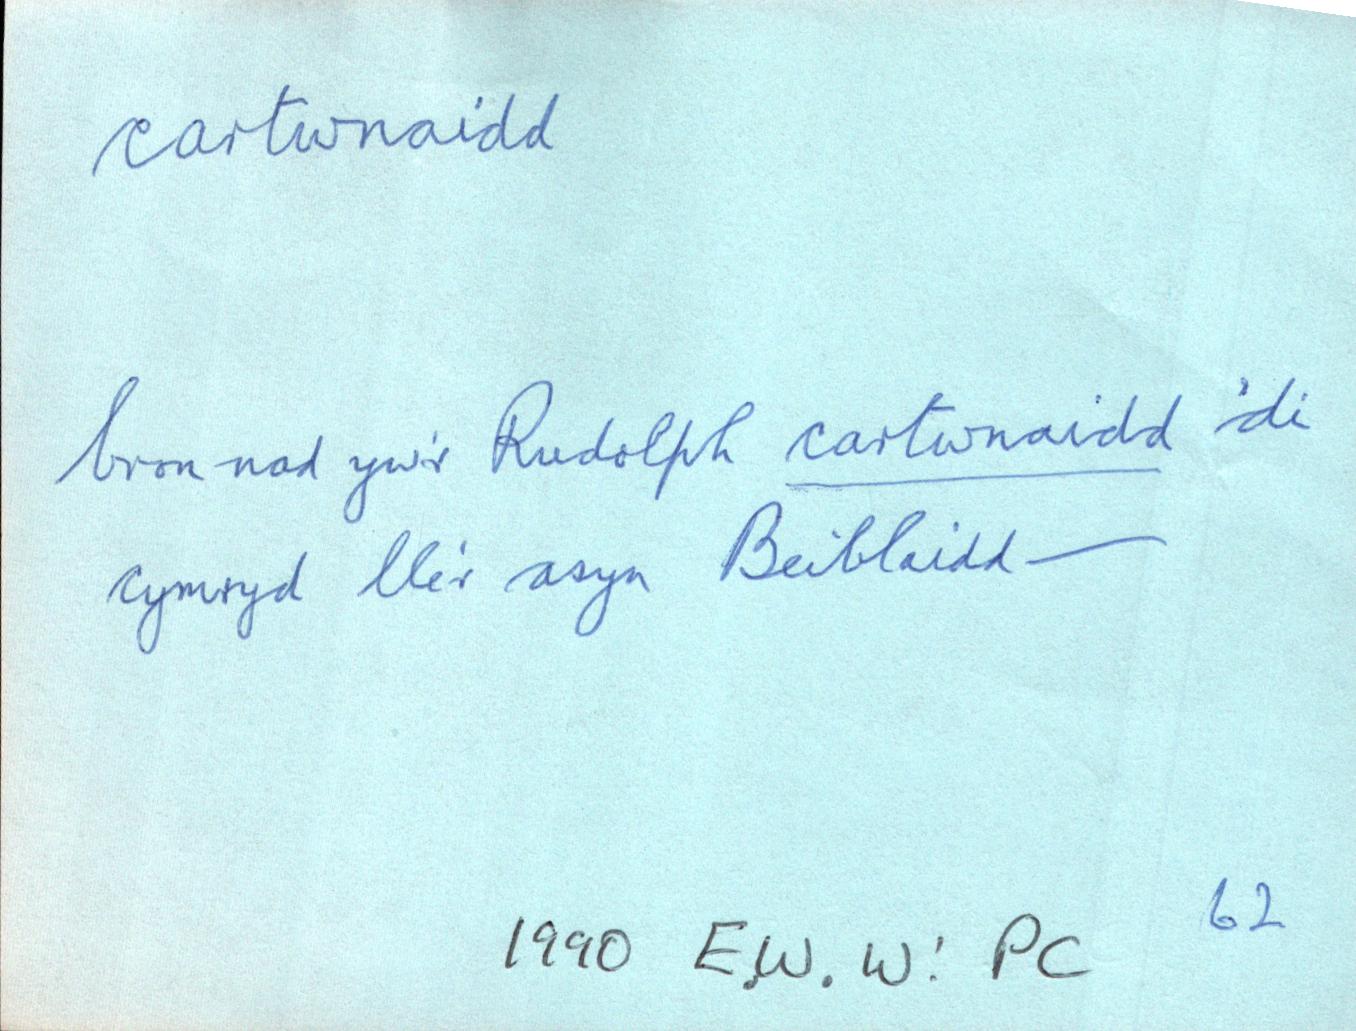 cartwnaidd
bron nad yw'r Rudolph cartwnaidd 'di
cymryd lle'r asyn Beiblaidd —
62
1990 E.W.W: PC